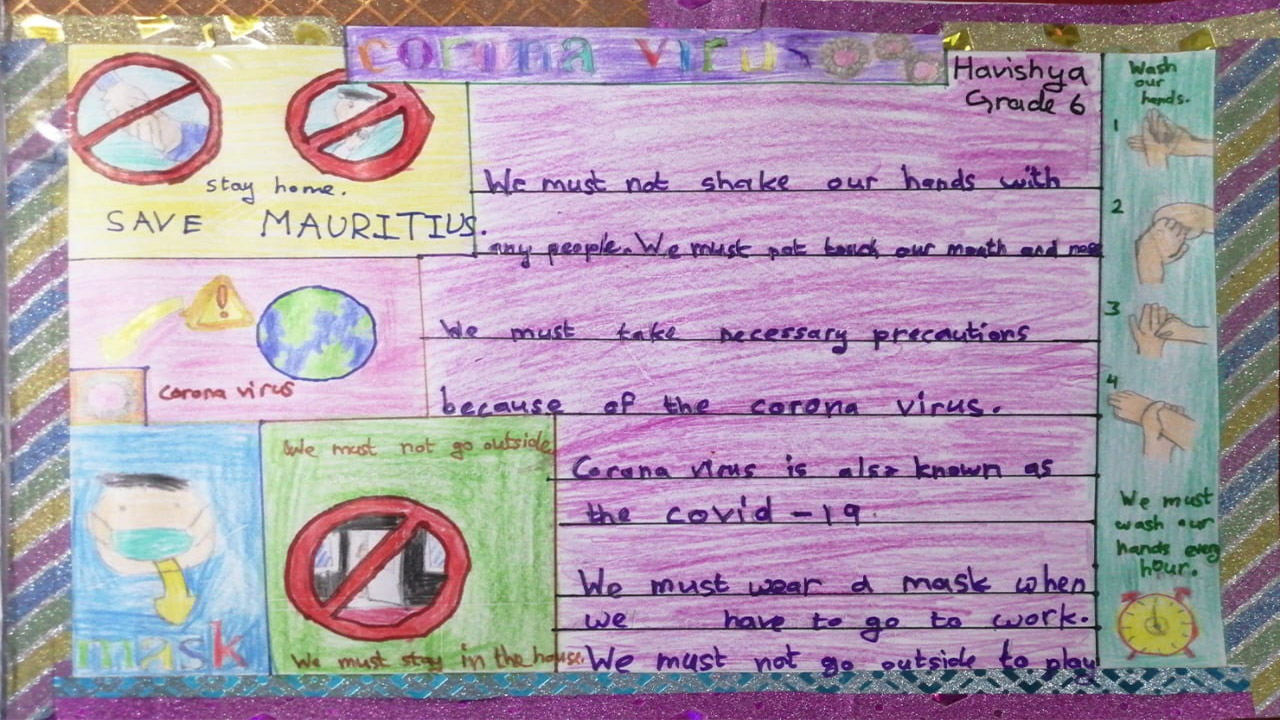 corona virus
Havishya
Grade 6
stay home.
SAVE MAURITIUS.
We must not shake our hands with
any people. We must not touch our mouth and nose
We must take necessary precautions
because of the corona virus.
corona virus
We must not go outside
We must stay in the house.
mask
Corona virus is also known as
the covid -19.
We must wear a mask when
we have to go to work.
We must not go outside to play
Wash
our
hands.
1
2
3
4
We must
wash our
hands every
hour.